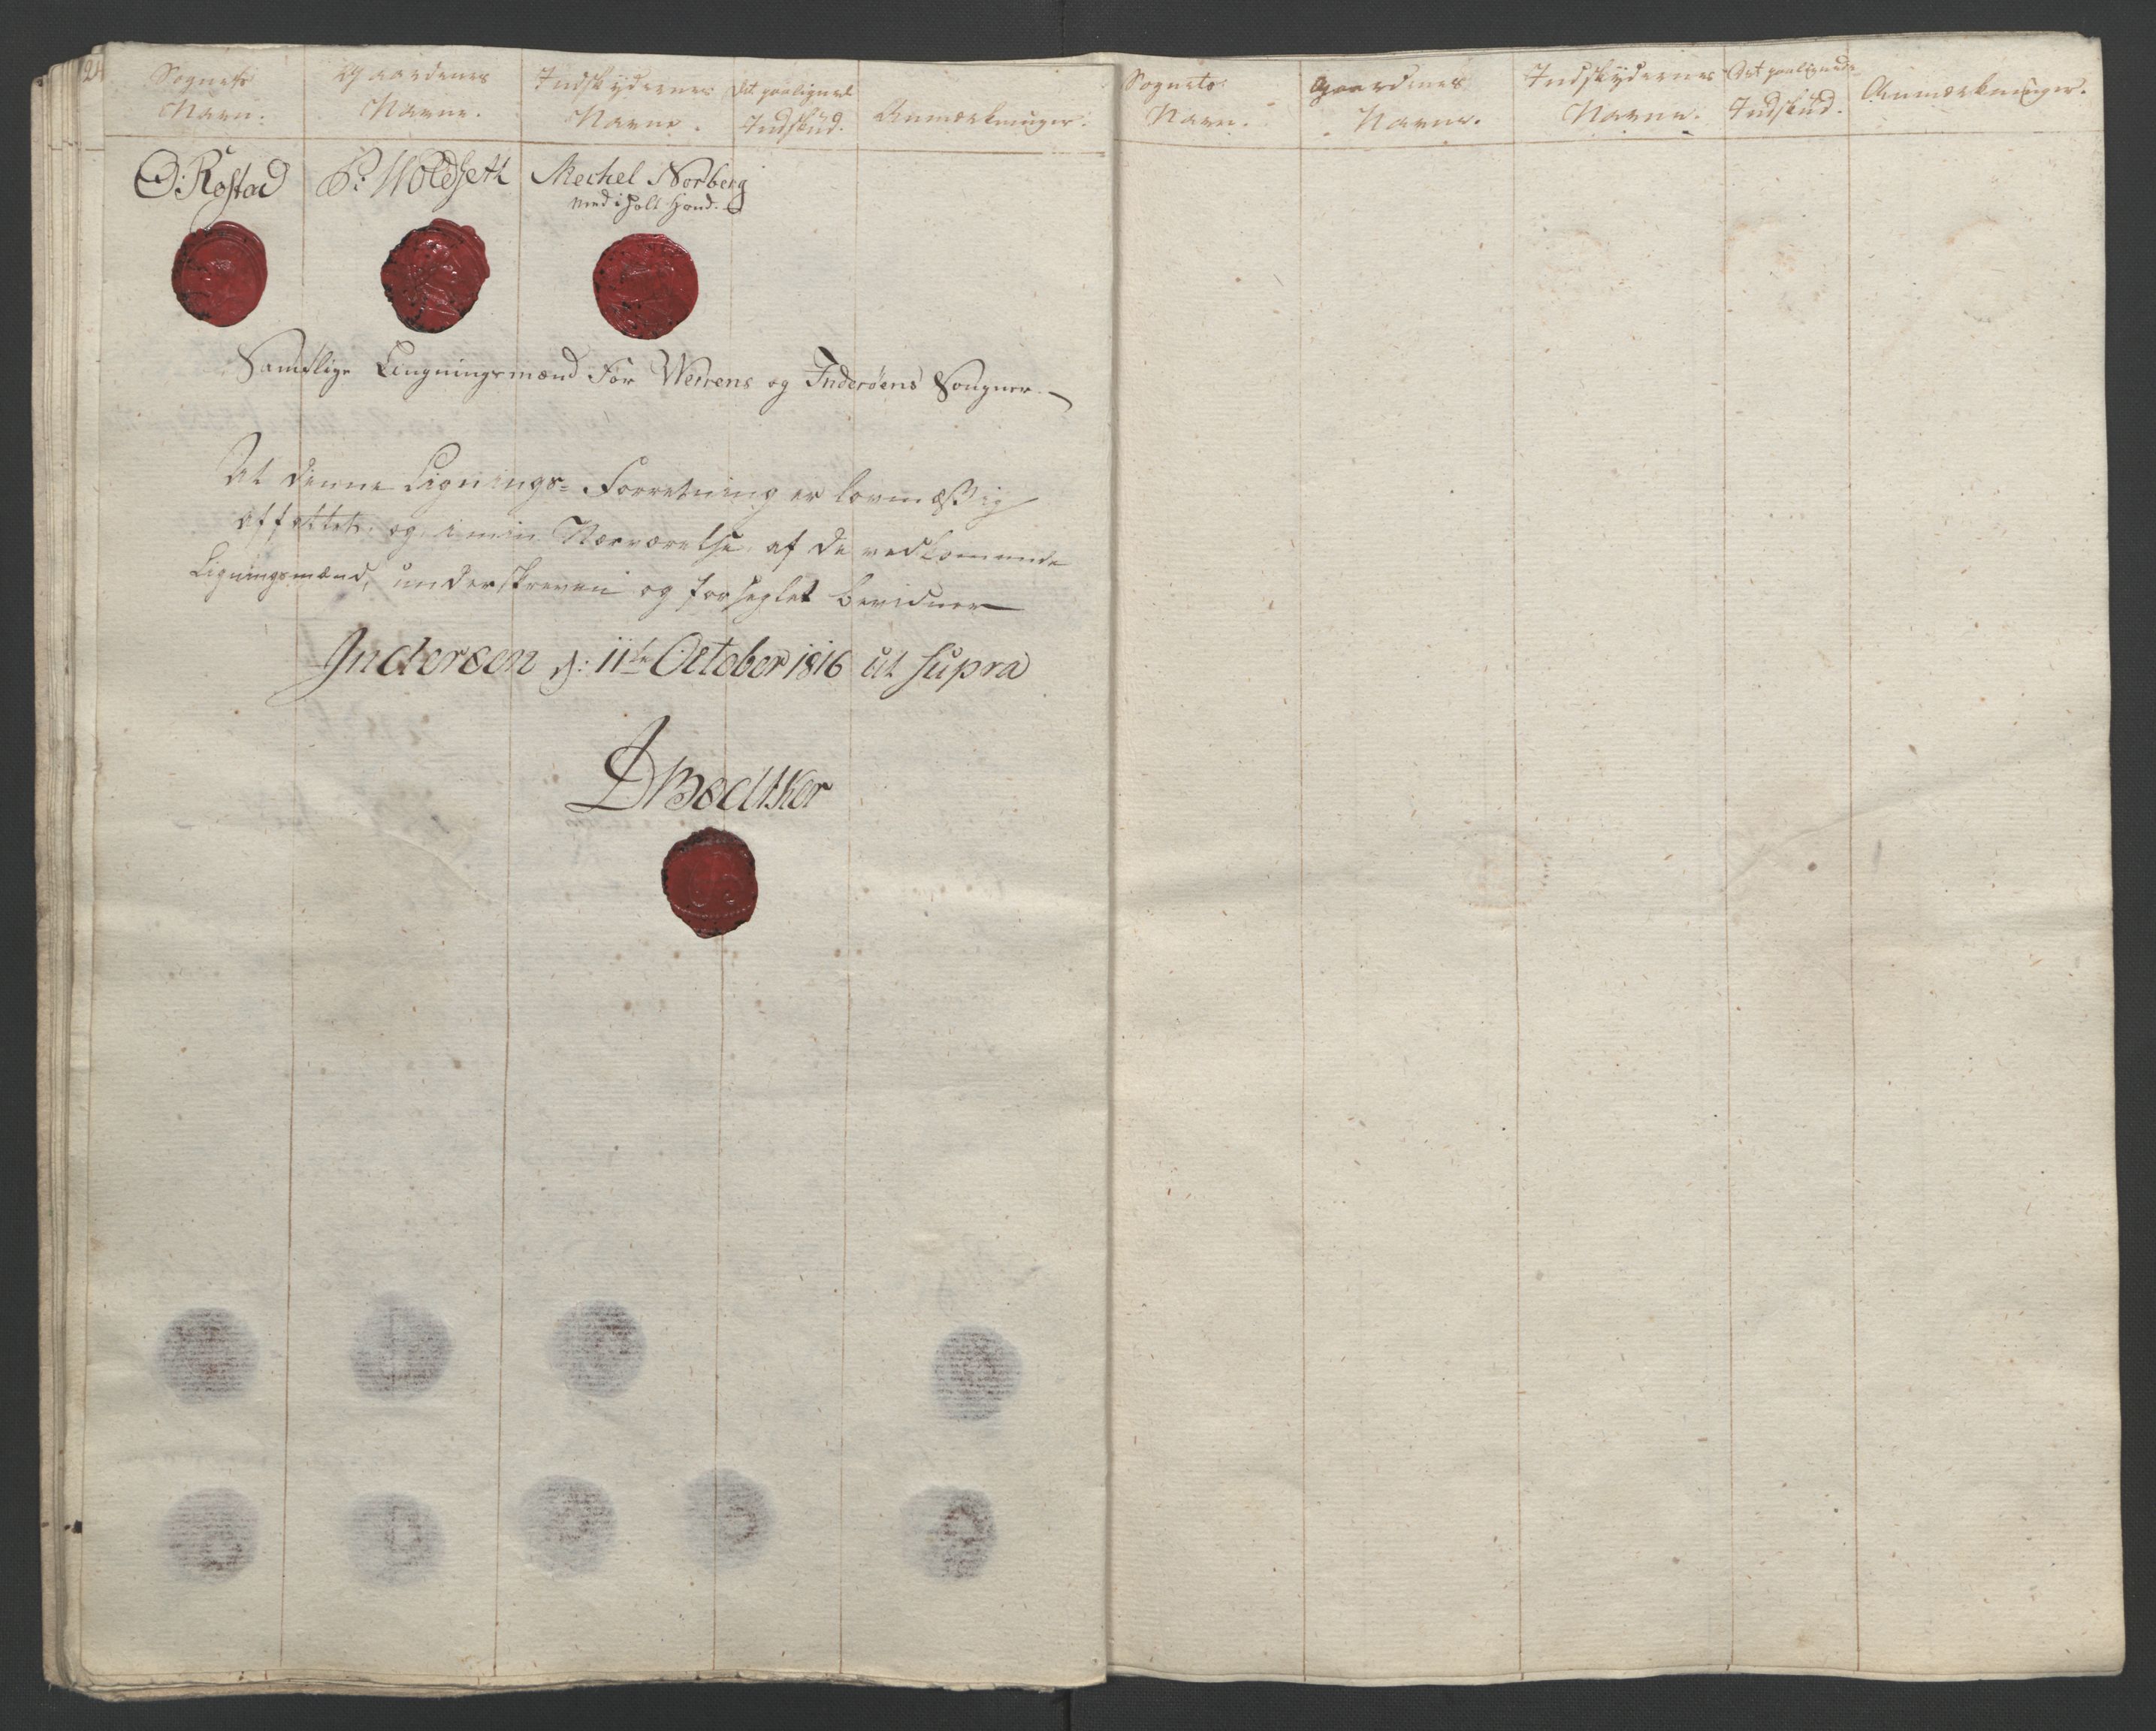 24
Sognets Navn.
Gaardenes Navne.
Indskydernes Navne.
Det paalignede Indskud.
Anmærkninger.
O: Rostad
P: Woldseth
Mechel Norberg
med i holt Hand.
Samtlige Lingningsmænd for Werrens og Inderøens Sougner.
At denne Lignings-Forretning er lovmæssig
affattet, og i min Nærværelse af de vedkommende
Ligningsmænd, underskreven og forseglet bevidner
Inderøen d: 11te October 1816 ut supra
Bødtker
Sognets Navn.
Gaardenes Navne.
Indskydernes Navne.
Det paalignede Indskud.
Anmærkninger.